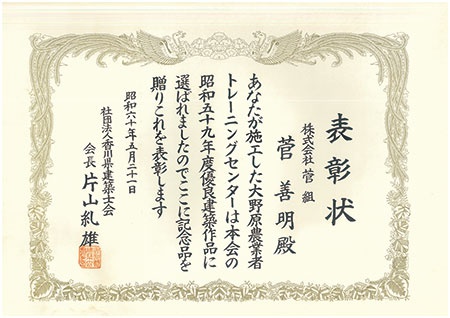 表彰状
株式会社 菅 組
菅 善明殿
あなたが施工した大野原農業者
トレーニングセンターは本会の
昭和五十九年度優良建築作品に
選ばれましたのでここに記念品を
贈りこれを表彰します
昭和六十年五月二十一日
社団法人香川県建築士会
会長 片山糺雄